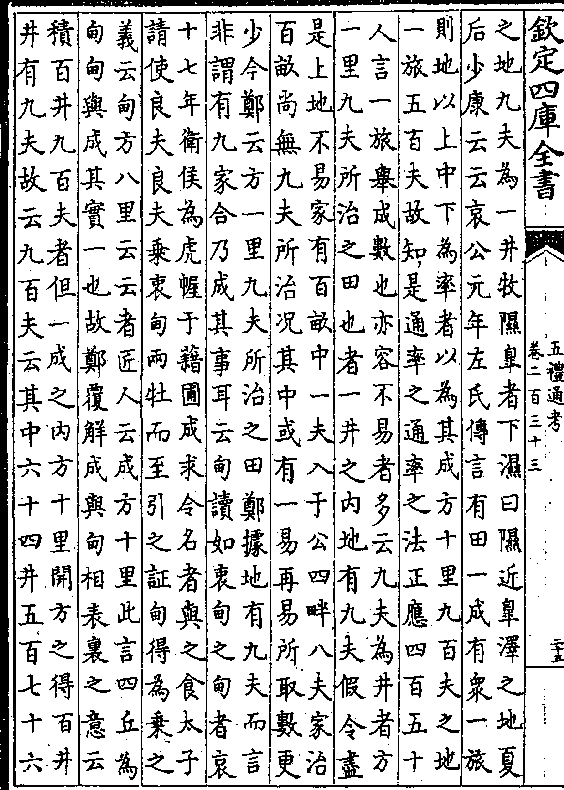 欽定四庫全書
五禮通考
卷二百三十三
二十五
之地九夫為一井牧隰臯者下濕曰隰近臯澤之地夏
后少康云云哀公元年左氏傳言有田一成有衆一旅
則地以上中下為率者以為其成方十里九百夫之地
一旅五百夫故知是通率之通率之法正應四百五十
人言一旅舉成數也亦容不易者多云九夫為井者方
一里九夫所治之田也者一井之内地有九夫假令盡
是上地不易家有百畝中一夫入于公四畔八夫家治
百畝尚無九夫所治況其中或有一易再易所取數更
少今鄭云方一里九夫所治之田鄭據地有九夫而言
非謂有九家合乃成其事耳云甸讀如衷甸之甸者哀
十七年衛侯為虎幄于籍圃成求令名者與之食太子
請使良夫良夫乗衷甸兩牡而至引之証甸得為乗之
義云甸方八里云云者匠人云成方十里此言四丘為
甸甸與成其實一也故鄭覆解成與甸相表裏之意云
積百井九百夫者但一成之内方十里開方之得百井
井有九夫故云九百夫云其中六十四井五百七十六